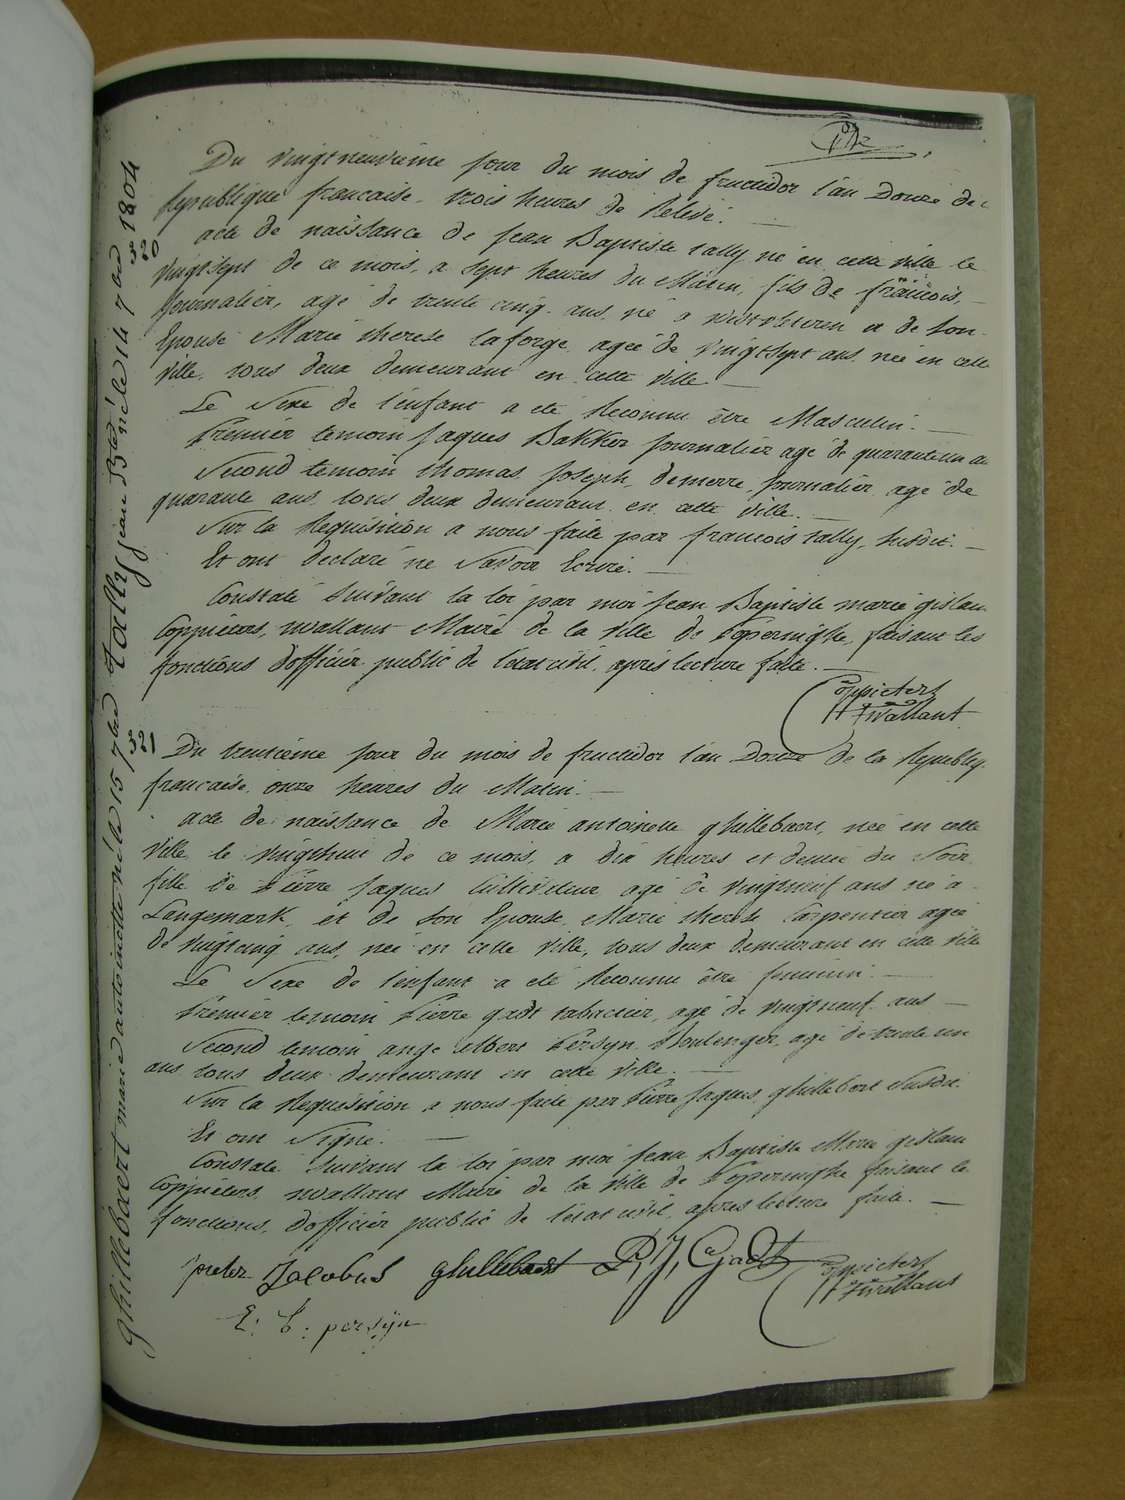 Du vingtneuvieme jour du mois de fructidor l'an Douze de
Republique francaise, trois heures de Relevé.
acte de naissance de jean Baptiste tally né en cette ville le
vingtsept de ce mois, a sept heures du Matin, fils de francois,
journalier, agé de trente cinq ans, né a et de son
Epouse Marie therese laforge agée de vingtsept ans née en cette
ville, tous deux demeurant en cette ville
Le Sexe de l'enfant a eté Reconnu être Masculin.
Premier temoin jaques Bakker journalier agé de quarante un
Second temoin thomas joseph demerre journalier agé de
quarante ans, tous deux demeurant en cette ville.
Sur la Requisition a nous faite par francois tally, susdit.
Et ont declaré ne Savoir Ecrire.
Constaté Suivant la loi par moi jean Baptiste marie gislain
Coppieters, wallant Maire de la ville de Poperinghe, faisant les
fonctions d'officier public de l'etat civil, après lecture faite.
Coppieters
wallant
Du trentieme jour du mois de fructidor l'an Douze de la Republiq.
francaise, onze heures du Matin.
acte de naissance de Marie antoinette ghillebaert, née en cette
ville le vingthuit de ce mois, a dix heures et demie du Soir
fille de Pierre jaques Cultivateur agé de vingtneuf ans né a
Langemark, et de son Epouse Marie therese Carpentier agée
de vingtcinq ans, née en cette ville, tous deux demeurant en cette ville
Le Sexe de l'enfant a eté Reconnu être feminin.
Premier temoin Pierre gadt tabacier, agé de vingtneuf ans
Second temoin ange Albert Persyn Boulenger agé de trente un
ans tous deux demeurant en cette ville.
Sur la Requisition a nous faite par Pierre jaques ghillebert Susdit.
Et ont Signé.
Constaté Suivant la loi par moi jean Baptiste Marie gislain
Coppieters, wallant Maire de la ville de Poperinghe faisant le
fonctions, d'officier public de l'état civil, apres lecture faite.
pieter Jacobus ghillebaert P, J, Gadt Coppieters
wallant
E: b: persijn
320 Tally jean Bte né le 14 7bre 1804
321 ghillebaert marie antoinette née le 15 7bre